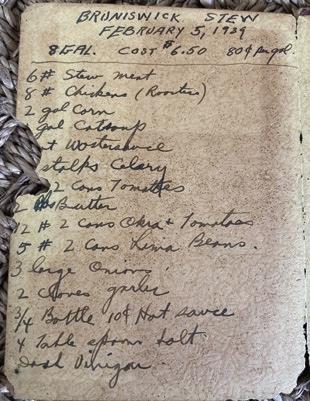 BRUNISWICK STEW
FEBRUARY 5, 1939
8 GAL. COST $6.50 80¢ per gal.
6 # Stew meat
8 # Chickens (Roosters)
2 gal Corn
gal Catsoup
stalks Celary
2 cans Tomattes
2 Butter
12 # 2 cans Okra + Tomatoes
5 # 2 Cans Lima Beans.
3 large Onions
2 cloves garlic
3/4 Bottle 10¢ Hot sauce
4 Table spoons salt
Dash Vinigar